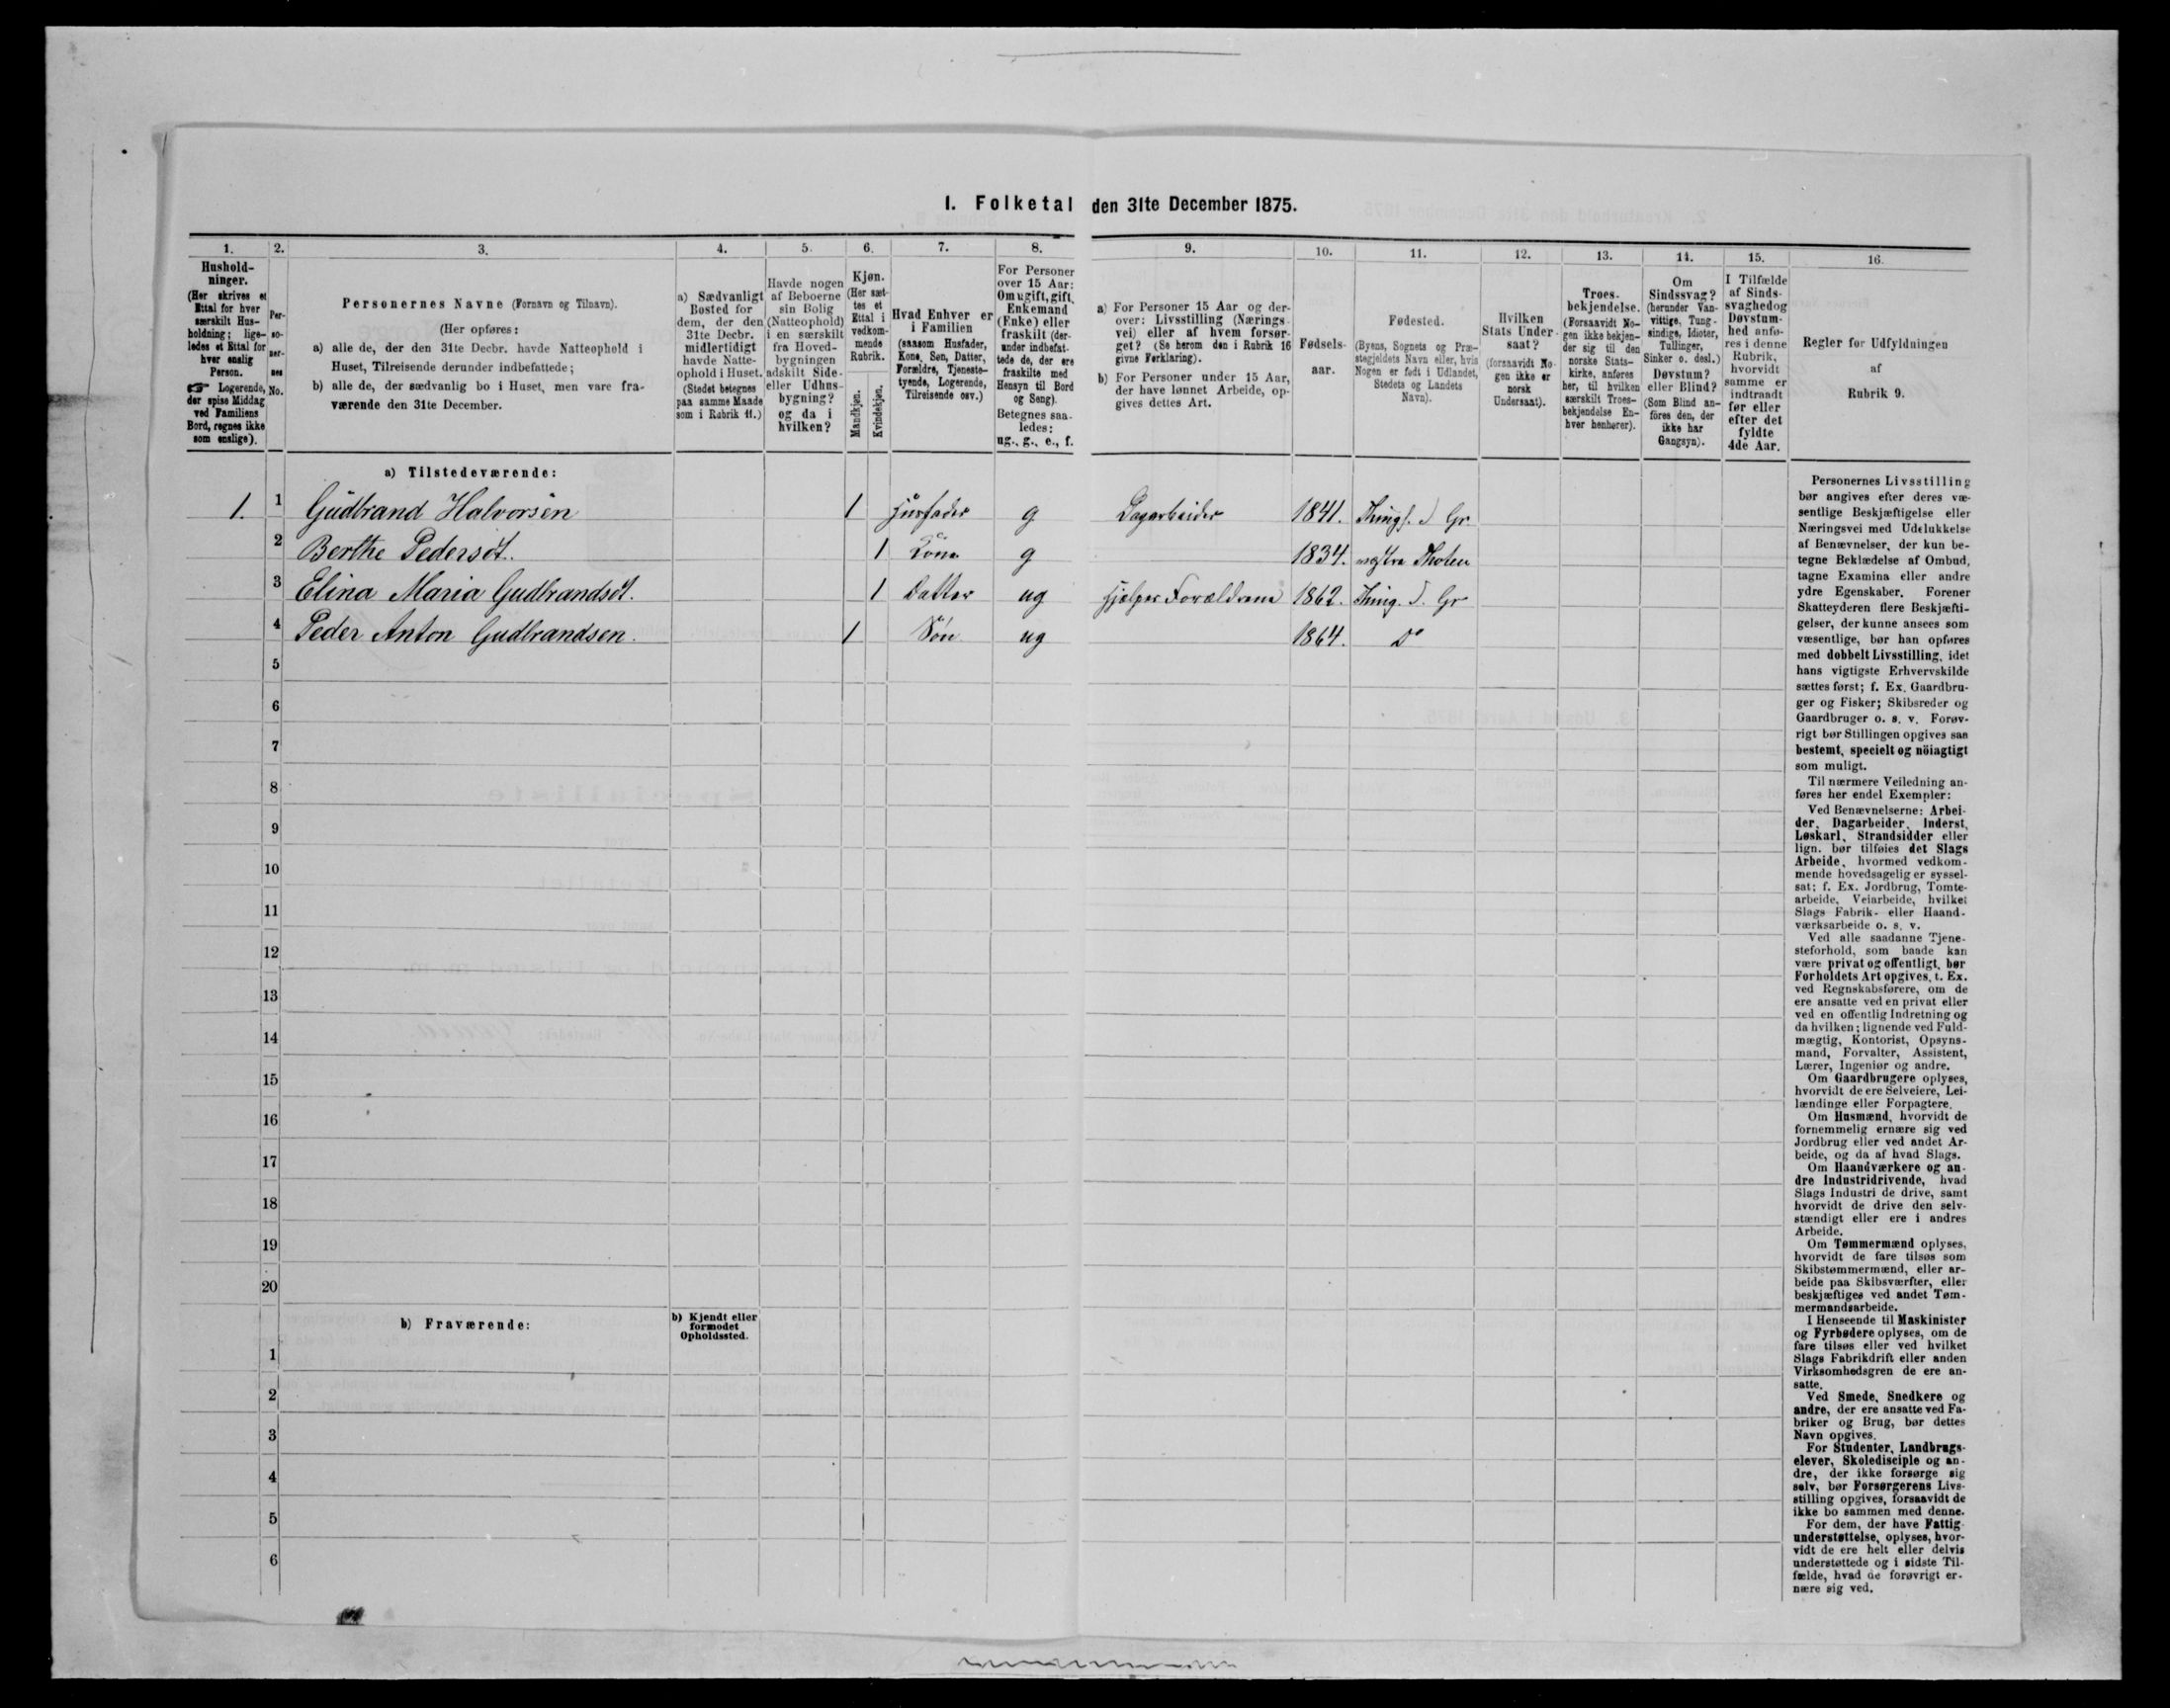 I. Folketal den 31te December 1875.
1.
Hushold-
ninger.
(Her skrives et
Ettal for hver
særskilt Hus-
holdning; lige-
ledes et Ettal for
hver enslig
Person.
☞ Logerende,
der spise Middag
ved Familiens
Bord, regnes ikke
som enslige).
2.
Per-
so-
ner-
nes
No.
3.
Personernes Navne (Fornavn og Tilnavn).
(Her opføres:
a) alle de, der den 31te Decbr. havde Natteophold i
Huset, Tilreisende derunder indbefattede;
b) alle de, der sædvanlig bo i Huset, men vare fra-
værende den 31te December.
4.
a) Sædvanligt
Bosted for
dem, der den
31te Decbr.
midlertidigt
havde Natte-
ophold i Huset.
(Stedet betegnes
paa samme Maade
som i Rubrik 11.)
5.
Havde nogen
af Beboerne
sin Bolig
(Natteophold)
i en særskilt
fra Hoved-
bygningen
adskilt Side-
eller Udhus-
bygning?
og da i
hvilken?
6.
Kjøn.
(Her sæt-
tes et
Ettal i
vedkom-
mende
Rubrik.
Mandkjøn.
Kvindekjøn.
7.
Hvad Enhver er
i Familien
(saasom Husfader,
Kone, Søn, Datter,
Forældre, Tjeneste-
tyende, Logerende,
Tilreisende osv.)
8.
For Personer
over 15 Aar:
Om ugift, gift,
Enkemand
(Enke) eller
fraskilt (der-
under indbefat-
tede de, der ere
fraskilte med
Hensyn til Bord
og Seng).
Betegnes saa-
ledes:
ug., g., e., f.
9.
a) For Personer 15 Aar og der-
over: Livsstilling (Nærings-
vei) eller af hvem forsør-
get? (Se herom den i Rubrik 16
givne Forklaring).
b) For Personer under 15 Aar,
der have lønnet Arbeide, op-
gives dettes Art.
10.
Fødsels-
aar.
11.
Fødested.
(Byens, Sognets og Præ-
stegjeldets Navn eller, hvis
Nogen er født i Udlandet,
Stedets og Landets
Navn).
12.
Hvilken
Stats Under-
saat?
(forsaavidt No-
gen ikke er
norsk
Undersaat).
13.
Troes-
bekjendelse.
(Forsaavidt No-
gen ikke bekjen-
der sig til den
norske Stats-
kirke, anføres
her, til hvilken
særskilt Troes-
bekjendelse En-
hver henhører).
14.
Om
Sindssvag?
(herunder Van-
vittige, Tung-
sindige, Idioter,
Tullinger,
Sinker o. desl.)
Døvstum?
eller Blind?
(Som Blind an-
føres den, der
ikke har
Gangsyn).
15.
I Tilfælde
af Sinds-
svaghed og
Døvstum-
hed anfø-
res i denne
Rubrik,
hvorvidt
samme er
indtraadt
før eller
efter det
fyldte
4de Aar.
16.
Regler for Udfyldningen
af
Rubrik 9.
a) Tilstedeværende:
1. 1 Gudbrand Halvorsen 1 Husfader g Dagarbeider 1841.
2 Berthe Pedersdt. 1 Kone g 1834. Thoten
3 Elina Maria Gudbrandsdt. 1 Datter ug hjelper Forældrene 1862.
4 Peder Anton Gudbrandsen. 1 Søn ug 1864. Do
5
6
7
8
9
10
11
12
13
14
15
16
17
18
19
20
b) Fraværende:
b) Kjendt eller
formodet
Opholdssted.
1
2
3
4
5
6
Personernes Livsstilling
bør angives efter deres væ-
sentlige Beskjæftigelse eller
Næringsvei med Udelukkelse
af Benævnelser, der kun be-
tegne Beklædelse af Ombud,
tagne Examina eller andre
ydre Egenskaber. Forener
Skatteyderen flere Beskjæfti-
gelser, der kunne ansees som
væsentlige, bør han opføres
med dobbelt Livsstilling, idet
hans vigtigste Erhvervskilde
sættes først; f. Ex. Gaardbru-
ger og Fisker; Skibsreder og
Gaardbruger o. s. v. Forøv-
rigt bør Stillingen opgives saa
bestemt, specielt og nöiagtigt
som muligt.
Til nærmere Veiledning an-
føres her endel Exempler:
Ved Benævnelserne: Arbei-
der, Dagarbeider, Inderst,
Løskarl, Strandsidder eller
lign. bør tilføies det Slags
Arbeide, hvormed vedkom-
mende hovedsagelig er syssel-
sat; f. Ex. Jordbrug, Tomte-
arbeide, Veiarbeide, hvilket
Slags Fabrik- eller Haand-
værksarbeide o. s. v.
Ved alle saadanne Tjene-
steforhold, som baade kan
være privat og offentligt, bør
Forholdets Art opgives, t. Ex.
ved Regnskabsførere, om de
ere ansatte ved en privat eller
ved en offentlig Indretning og
da hvilken; lignende ved Fuld-
mægtig, Kontorist, Opsyns-
mand, Forvalter, Assistent,
Lærer, Ingeniør og andre.
Om Gaardbrugere oplyses,
hvorvidt de ere Selveiere, Lei-
lændinge eller Forpagtere.
Om Husmænd, hvorvidt de
fornemmelig ernære sig ved
Jordbrug eller ved andet Ar-
beide, og da af hvad Slags.
Om Haandværkere og an-
dre Industridrivende, hvad
Slags Industri de drive, samt
hvorvidt de drive den selv-
stændigt eller ere i andres
Arbeide.
Om Tømmermænd oplyses,
hvorvidt de fare tilsøs som
Skibstømmermænd, eller ar-
beide paa Skibsværfter, eller
beskjæftiges ved andet Tøm-
mermandsarbeide.
I Henseende til Maskinister
og Fyrbødere oplyses, om de
fare tilsøs eller ved hvilket
Slags Fabrikdrift eller anden
Virksomhedsgren de ere an-
satte.
Ved Smede, Snedkere og
andre, der ere ansatte ved Fa-
briker og Brug, bør dettes
Navn opgives.
For Studenter, Landbrugs-
elever, Skoledisciple og an-
dre, der ikke forsørge sig
selv, bør Forsørgerens Livs-
stilling opgives, forsaavidt de
ikke bo sammen med denne.
For dem, der have Fattig-
understøttelse, oplyses, hvor-
vidt de ere helt eller delvis
understøttede og i sidste Til-
fælde, hvad de forøvrigt er-
nære sig ved.